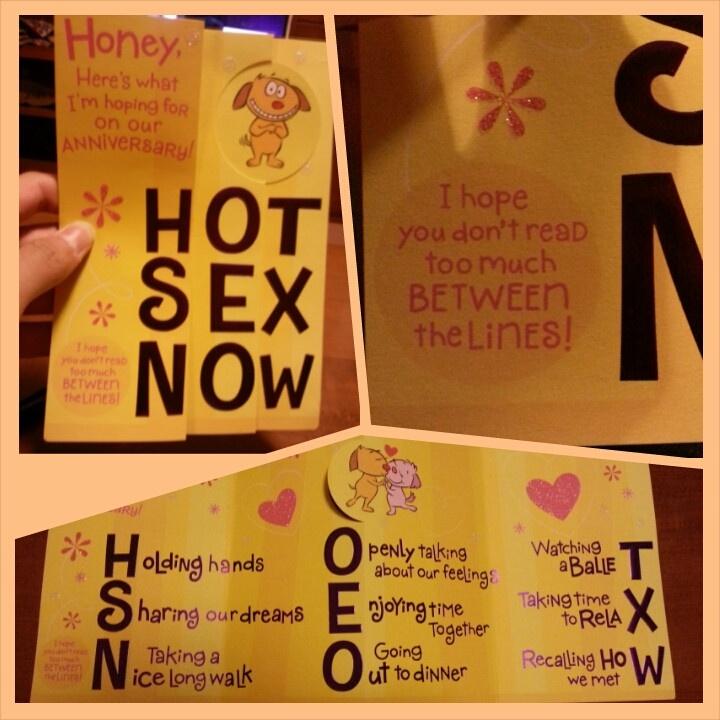 Honey,
Here's what
I'm hoping for
on our
ANNiversary!
HOT
SEX
NOW
I hope
you don't read
too much
BETWEEN
the LiNES!
I hope
you don't read
too much
BETWEEN
the LiNES!
ary!
Holding hands
Sharing our dreams
Taking a
Nice Long walk
I hope
you don't read
too much
BETWEEN
the LiNES!
Openly talking
about our feelings
Enjoying time
Together
Going
Out to dinner
Watching
a BalleT
Taking time
to RelaX
Recalling HoW
we met